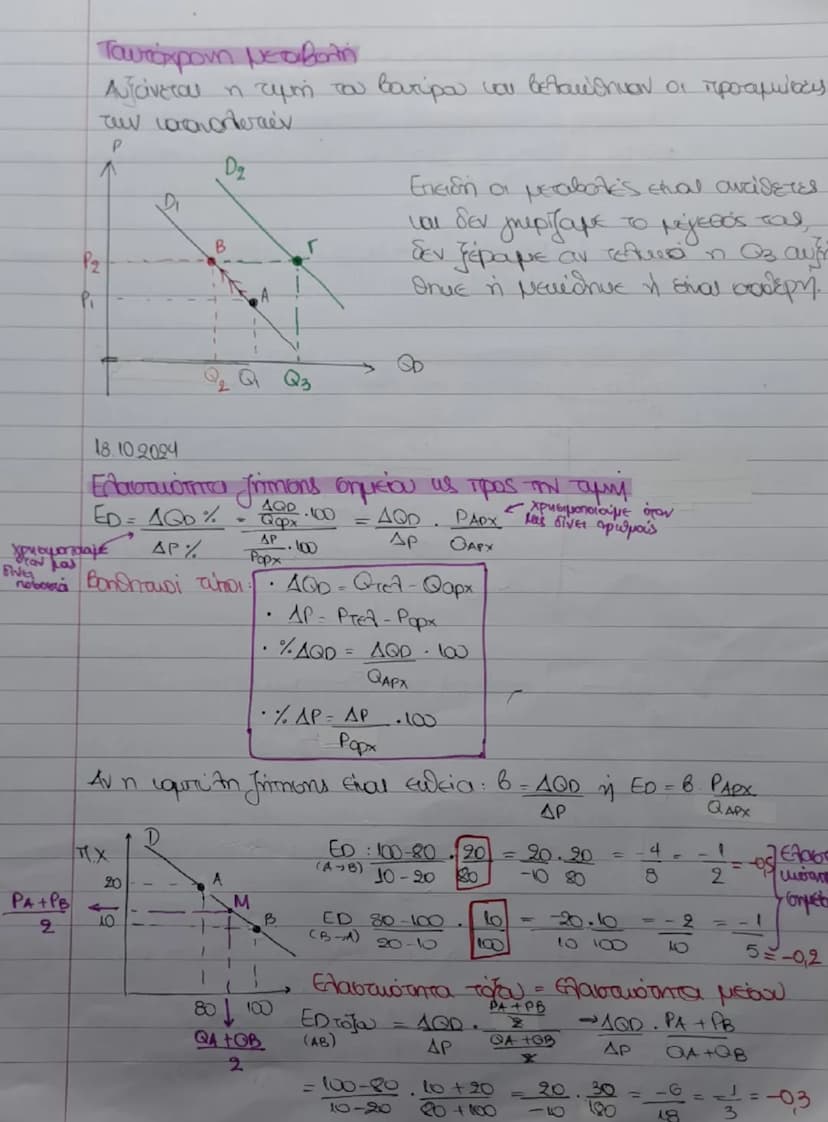 Ταυτόχρονη μεταβολή
Αυξάνεται η τιμή του βουτύρου και βελτιώθηκαν οι προτιμήσεις
των καταναλωτών
P
D₂
D₁
B
Γ
P₂
A
P₁
Q₂ Q₁ Q₃
QD
Επειδή οι μεταβολές είναι αντίθετες
και δεν γνωρίζαμε το μέγεθός τους,
δεν ξέραμε αν τελικά η Q₃ αυξή
θηκε ή μειώθηκε ή είναι σταθερή.
18.10.2024
Ελαστικότητα ζήτησης σημείου ως προς την τιμή
ED = ΔQD % / ΔP % = (ΔQD / Qαρχ · 100) / (ΔP / Pαρχ · 100) = ΔQD / ΔP · PΑΡΧ / QΑΡΧ
χρησιμοποιούμε όταν
μας δίνει αριθμούς
χρησιμοποιούμε
όταν μας
δίνει
ποσοστά
Βοηθητικοί τύποι:
· ΔQD = Qτελ - Qαρχ
· ΔP = Pτελ - Pαρχ
· % ΔQD = ΔQD / QΑΡΧ · 100
· % ΔP = ΔP / Pαρχ · 100
Αν η καμπύλη ζήτησης είναι ευθεία: β = ΔQD / ΔP ή ED = β · PΑΡΧ / QΑΡΧ
π.χ
D
A
20
M
10
B
80 100
PA + PB / 2
QA + QB / 2
ED (A→B) : 100-80 / 10-20 · 20 / 80 = 20 / -10 · 20 / 80 = -4 / 8 = -1 / 2 = -0,5
ED (B→A) 80-100 / 20-10 · 10 / 100 = -20 / 10 · 10 / 100 = -2 / 10 = -1 / 5 = -0,2
Ελαστικότητα τόξου = Ελαστικότητα μέσου
ED τόξου (AB) = ΔQD / ΔP · (PA + PB / 2) / (QA + QB / 2) → ΔQD / ΔP · PA + PB / QA + QB
= 100-80 / 10-20 · 10+20 / 80+100 = 20 / -10 · 30 / 180 = -6 / 18 = -1 / 3 = -0,3